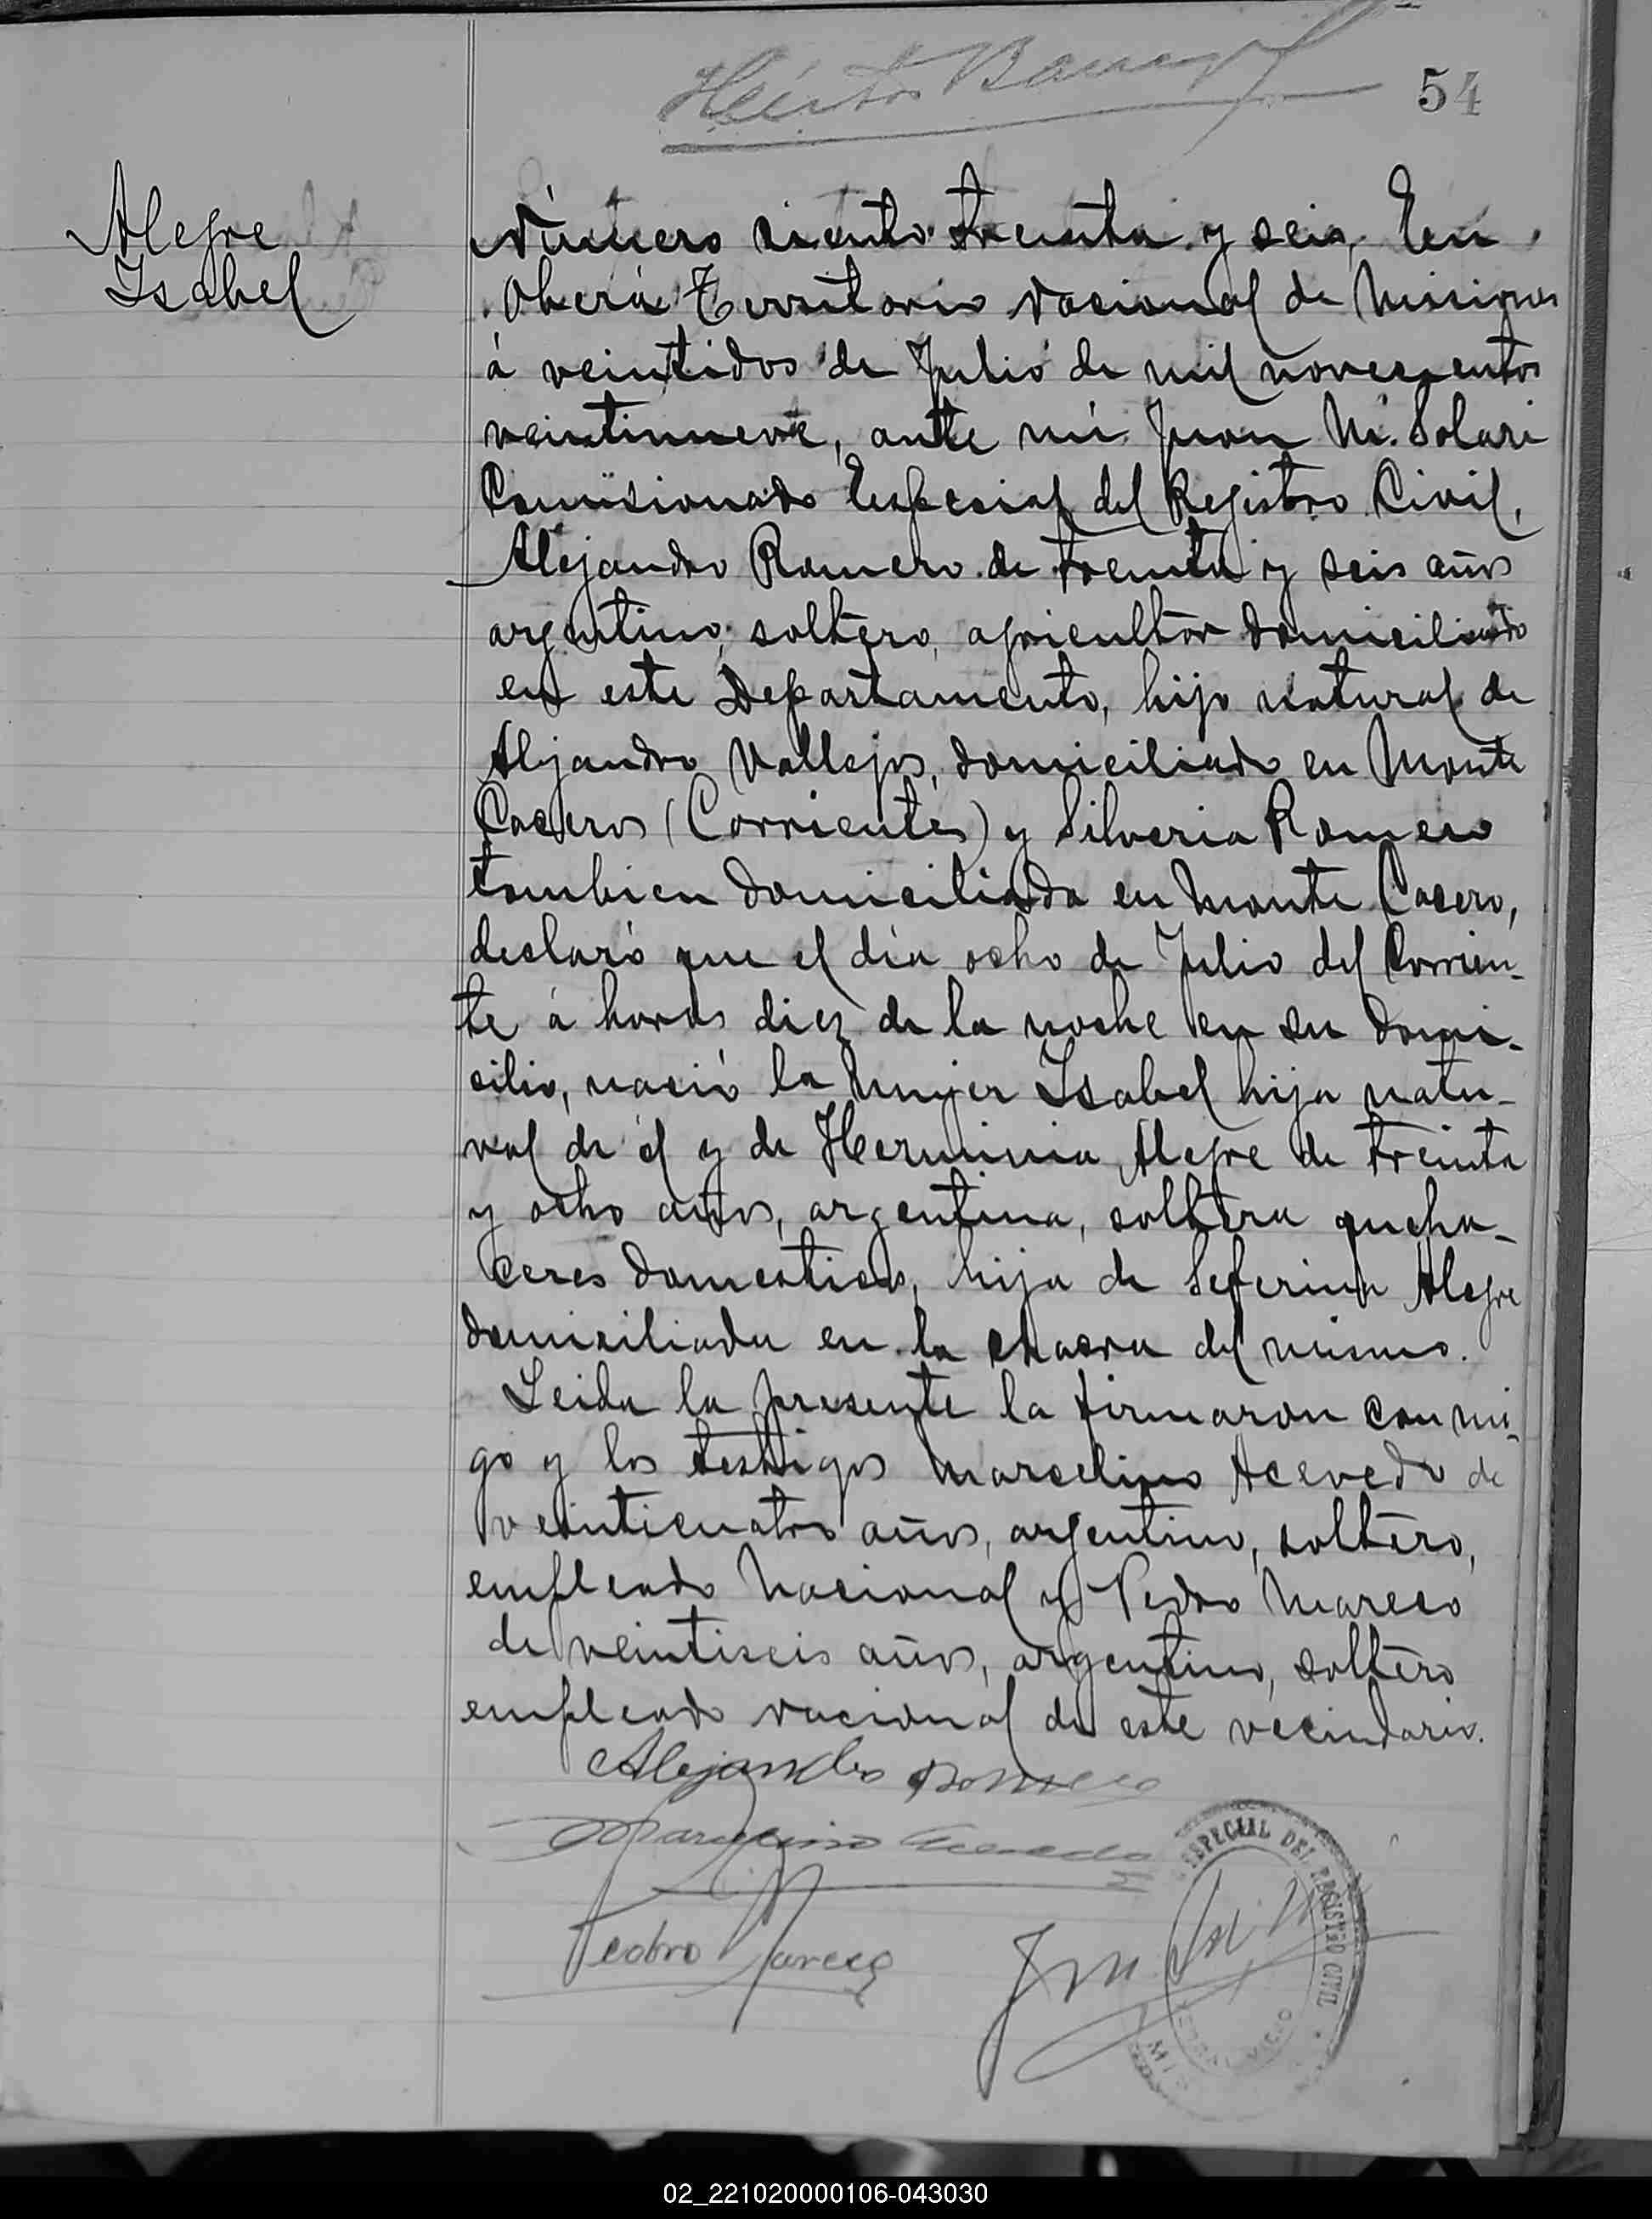 54
Alegre
Isabel
Número ciento treinta y seis, En
Oberá Territorio Nacional de Misiones
á veintidos de Julio de mil novecientos
veintinueve, ante mi Juan M. Solari
Comisionado Especial del Registro Civil,
Alejandro Romero de treinta y seis años
argentino, soltero, agricultor domiciliado
en este Departamento, hijo natural de
Alejandro Vallejos, domiciliado en Monte
Caseros (Corrientes) y Silveria Romero
tambien domiciliada en Monte Casero,
declaró que el día ocho de Julio del Corrien-
te á horas diez de la noche en su domi-
cilio, nació la mujer Isabel hija natu-
ral de él y de Herminia Alegre de treinta
y ocho años, argentina, soltera queha-
ceres domesticos, hija de Seferina Alegre
domiciliada en la chacra del mismo.
Leida la presente la firmaron con mi-
go y los testigos Marcelino Acevedo de
veinticuatro años, argentino, soltero,
empleado Nacional y Pedro Mareco
de veintiseis años, argentino, soltero
empleado nacional de este vecindario.
Alejandro Romero
Marcelino Acevedo
Pedro Mareco
ESPECIAL DEL REGISTRO CIVIL
02_221020000106-043030